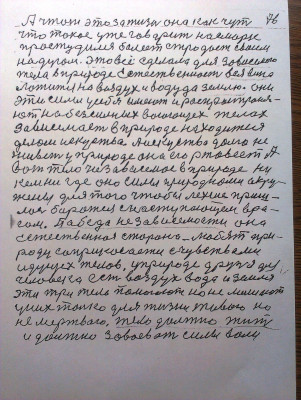 76
А что эта за тиза она как чут
что такое уже говорит насморк
простудился болеет страдает своим
недугом. Это всё сделала для зависимого
тела в природе Естественност
на воздух и воду да землю. они
эти силы у себя имеют и распространя-
ют на бессилных телах
Зависимает в природе находится
делом искуства. А искуство долго не
живет у природе она его А
вот тело независимое в природе ни
кем ни где оно силы природному окру-
жены для того чтобы легше приш-
лось боротся с наступающим вра-
гом. Победа независимости она
естественная сторона любят при-
роду соприкасатся с чувствами
идущих телов. у природе друзя для
человека ест воздух вода и земля
эти три тела помогают но не мешают
у них толко для жизни живого но
не мертвого. тело должно жит
и должно завоеват силы волю